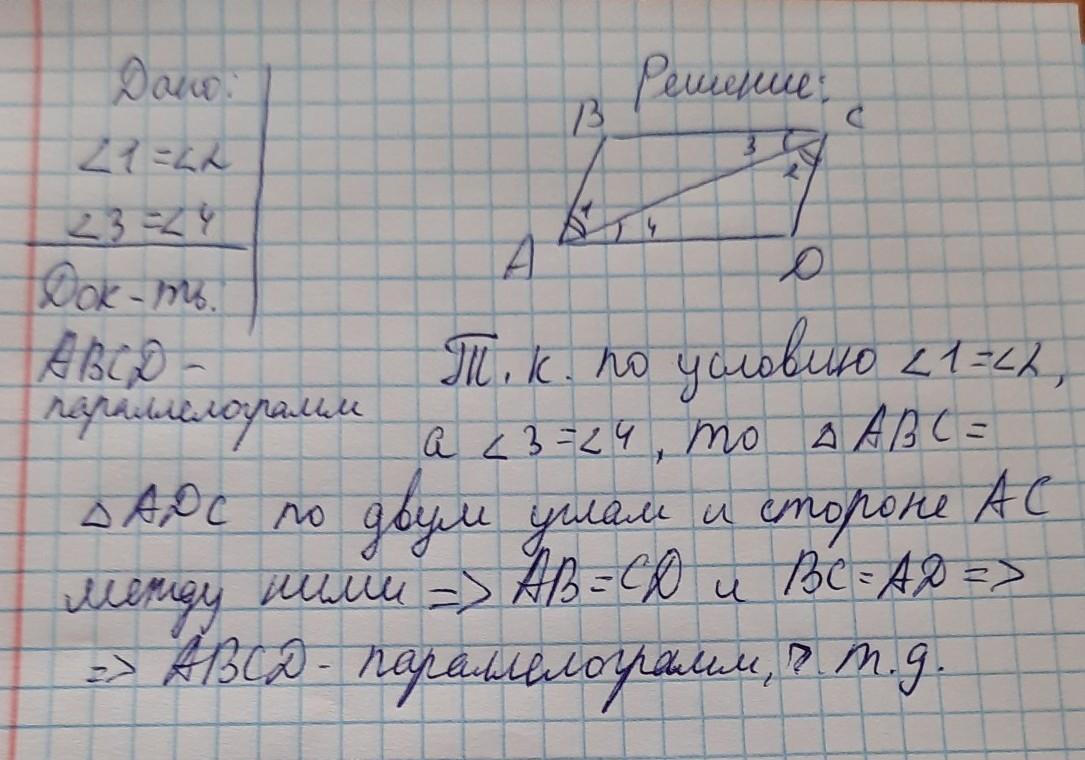 Дано:
∠1=∠2
∠3=∠4
Док-ть:
ABCD -
параллелограмм
Решение:
B
C
3
2
1
4
A
D
Т.к. по условию ∠1=∠2,
а ∠3=∠4, то △ABC=
△ADC по двум углам и стороне AC
между ними => AB=CD и BC=AD =>
=> ABCD - параллелограмм, ч.т.д.